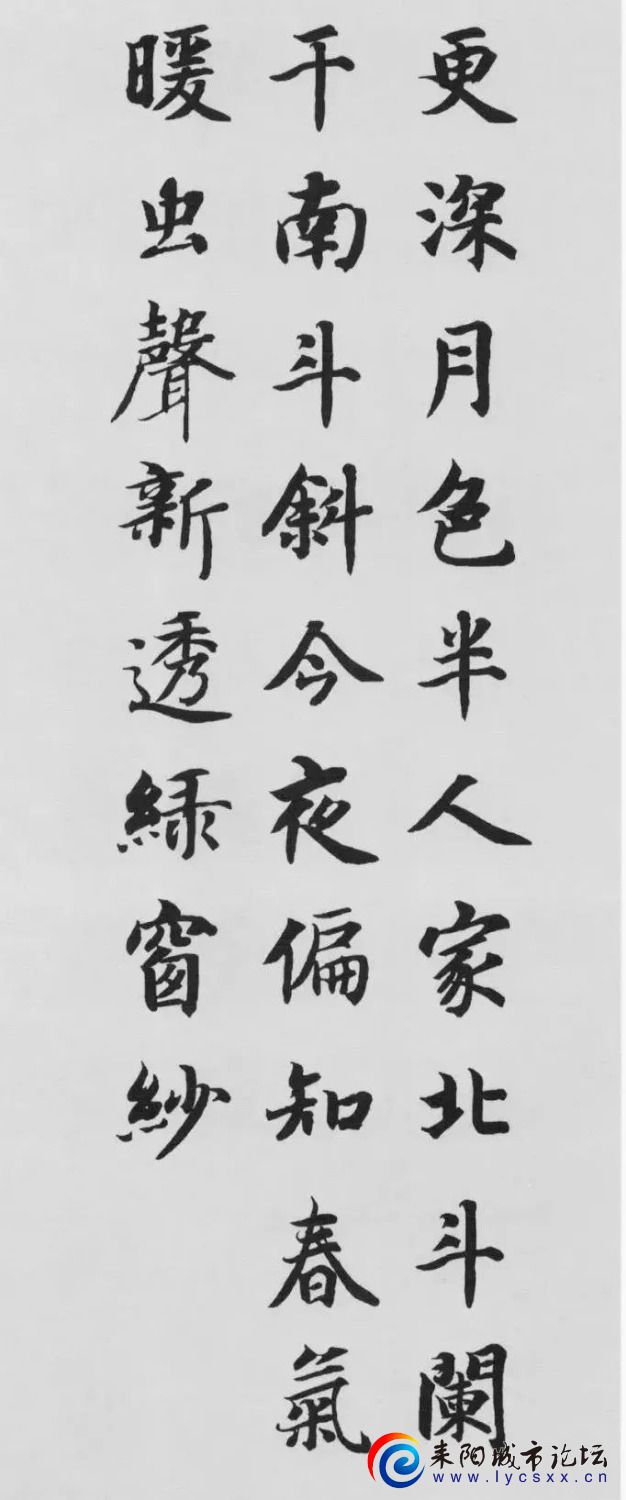 更深月色半人家北斗闌
干南斗斜今夜偏知春氣
暖虫聲新透綠窗紗
耒阳城市论坛
www.lycsxx.cn